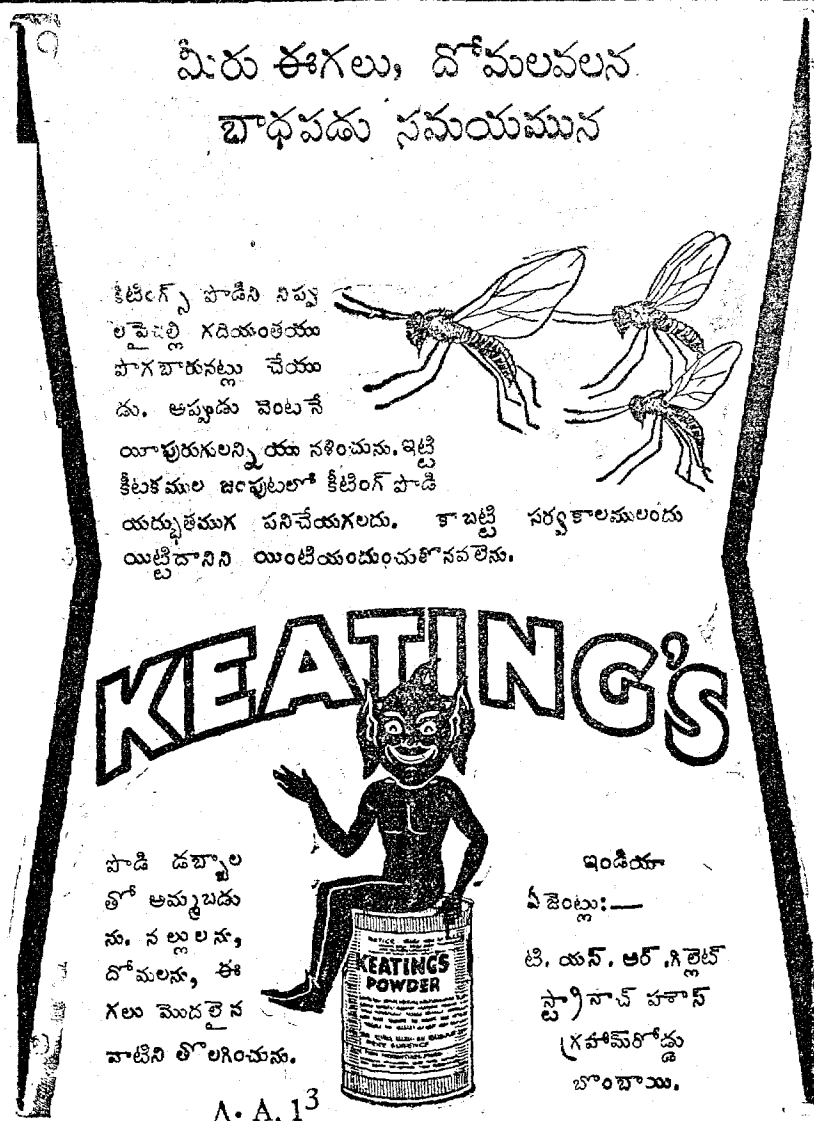 మీరు ఈగలు, దోమలవలన
బాధపడు సమయమున
కీటింగ్స్ పొడిని నిప్పు
లపైచల్లి గదియంతయు
పొగబారునట్లు చేయు
డు. అప్పుడు వెంటనే
యీపురుగులన్నియు నశించును. ఇట్టి
కీటకముల జంపుటలో కీటింగ్ పొడి
యద్భుతముగ పనిచేయగలదు. కాబట్టి సర్వకాలములందు
యిట్టిదానిని యింటియందుంచుకొనవలెను.
KEATING'S
పొడి డబ్బాల
తో అమ్మబడు
ను. నల్లులను,
దోమలను, ఈ
గలు మొదలైన
వాటిని తొలగించును.
KEATING'S
POWDER
ఇండియా
ఏజెంట్లు:—
టి. యస్. ఆర్. గిల్లెట్
స్ట్రానాచ్ హౌస్
గ్రహామ్‌రోడ్డు
బొంబాయి.
A. A. 13